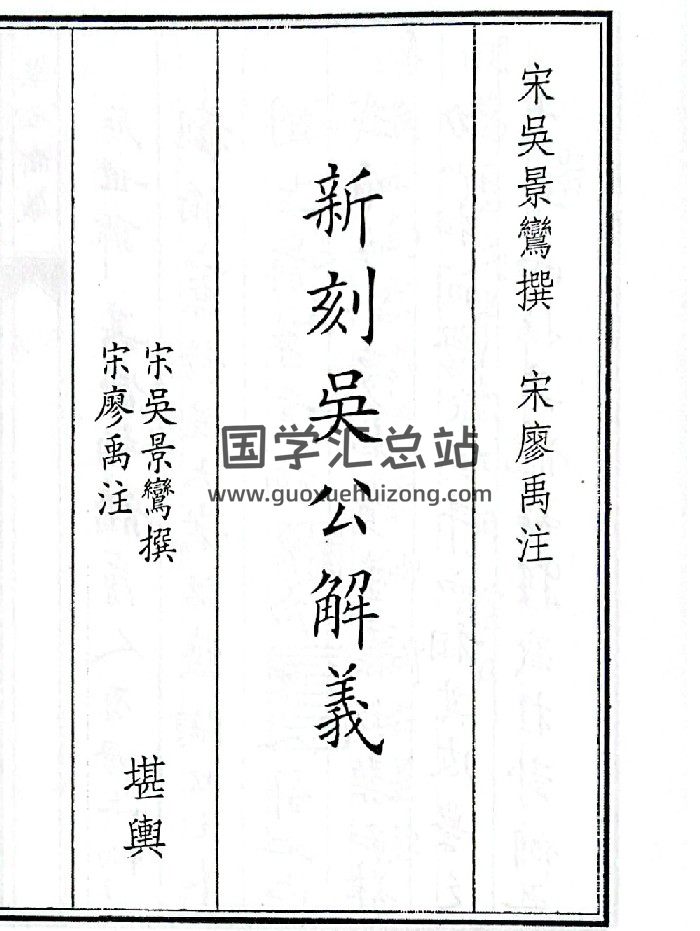 宋吳景鸞撰　宋廖禹注
新刻吳公解義
宋吳景鸞撰
宋廖禹注
堪輿
国学汇总站
www.guoxuehuizong.com